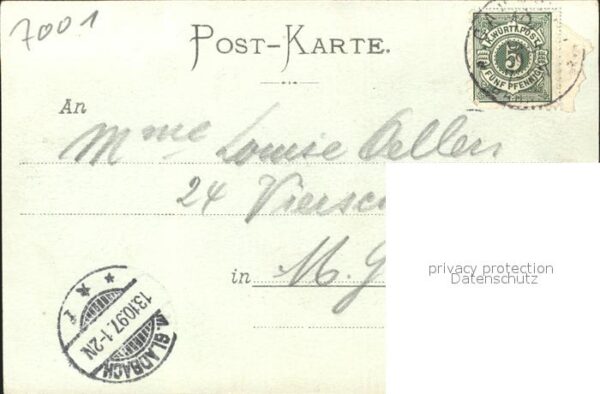 7001
POST-KARTE.
K. WÜRTT. POST
5
FÜNF PFENNIG
An
Mme Louise Oellers
24 Viersc
in M. G
privacy protection
Datenschutz
13.10.97.1-2N
M. GLADBACH